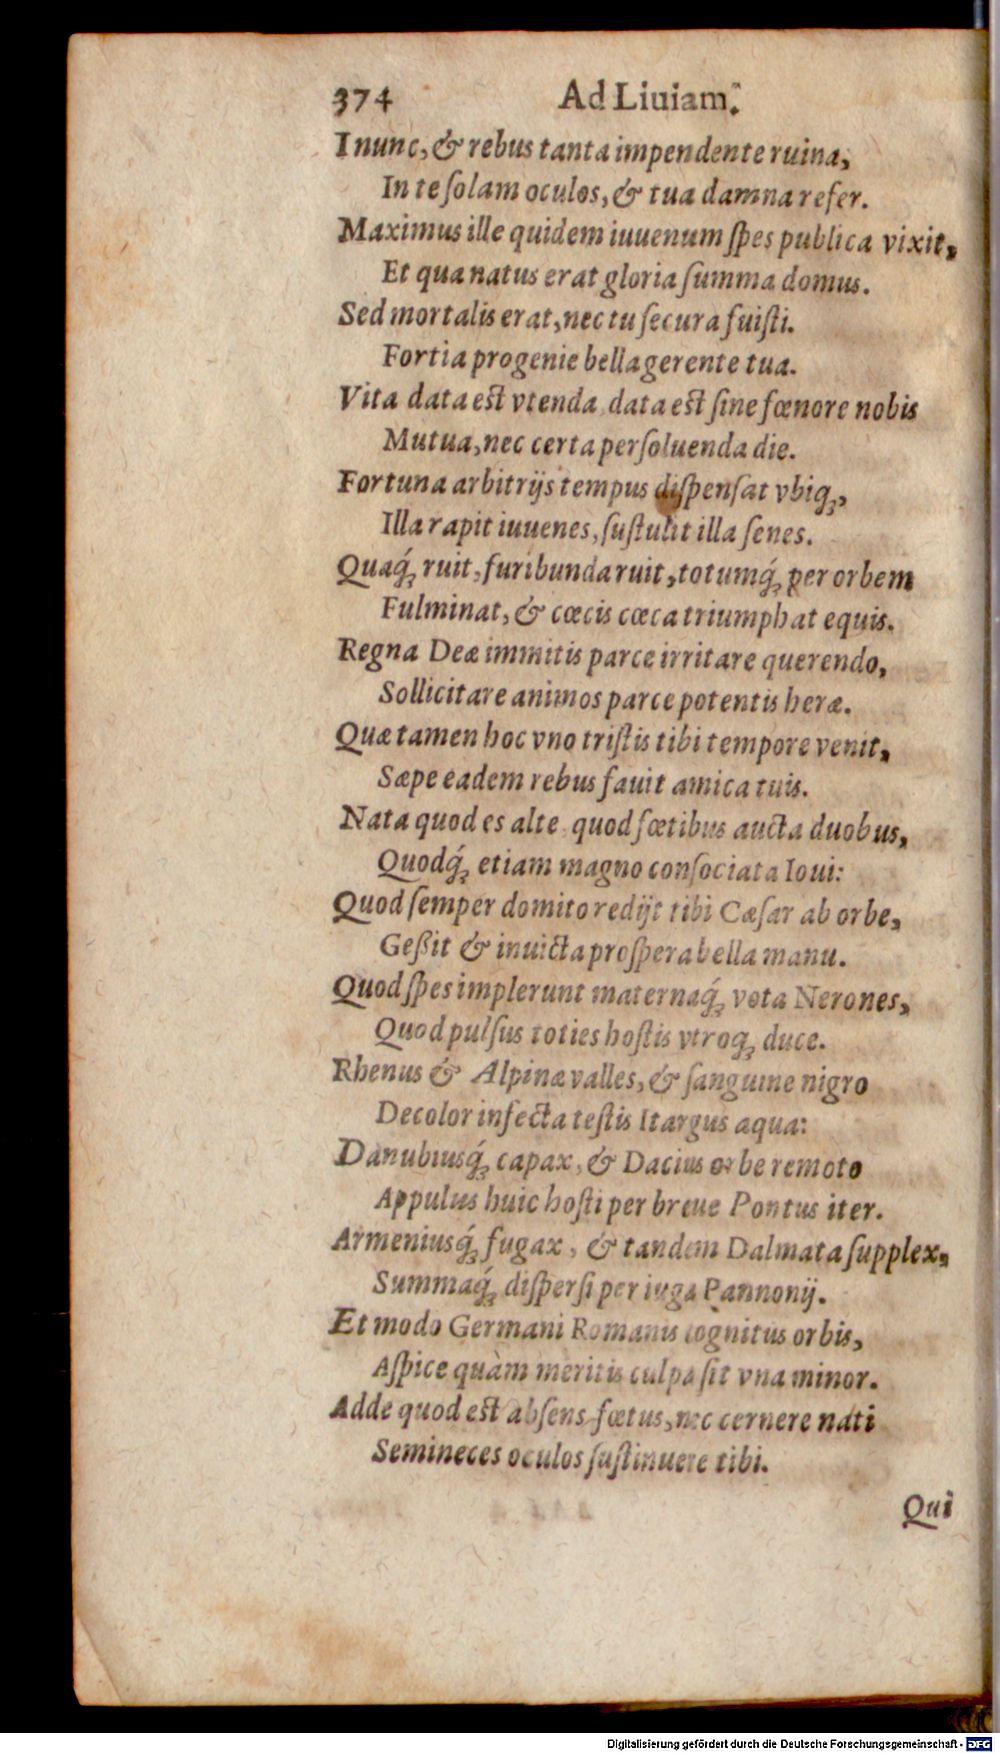 374 Ad Liuiam.
I nunc, & rebus tanta impendente ruina,
In te ſolam oculos, & tua damna refer.
Maximus ille quidem iuuenum ſpes publica vixit,
Et qua natus erat gloria ſumma domus.
Sed mortalis erat, nec tu ſecura fuiſti.
Fortia progenie bella gerente tua.
Vita data eſt vtenda, data eſt ſine fœnore nobis
Mutua, nec certa perſoluenda die.
Fortuna arbitrijs tempus diſpenſat vbiq́,
Illa rapit iuuenes, ſuſtulit illa ſenes.
Quaq́ ruit, furibunda ruit, totumq́ per orbem
Fulminat, & cœcis cœca triumphat equis.
Regna Deæ immitis parce irritare querendo,
Sollicitare animos parce potentis heræ.
Quæ tamen hoc vno triſtis tibi tempore venit,
Sæpe eadem rebus fauit amica tuis.
Nata quod es alte, quod fœtibus aucta duobus,
Quodq́ etiam magno conſociata Ioui:
Quod ſemper domito redijt tibi Cæſar ab orbe,
Geßit & inuicta proſpera bella manu.
Quod ſpes implerunt maternaq́ vota Nerones,
Quod pulſus toties hoſtis vtroq́ duce.
Rhenus & Alpinæ valles, & ſanguine nigro
Decolor infecta teſtis Itargus aqua:
Danubiusq́ capax, & Dacius orbe remoto
Appulus huic hoſti per breue Pontus iter.
Armeniusq́ fugax, & tandem Dalmata ſupplex,
Summaq́ diſperſi per iuga Pannonij.
Et modo Germani Romanis cognitus orbis,
Aſpice quàm meritis culpa ſit vna minor.
Adde quod eſt abſens fœtus, nec cernere nati
Semineces oculos ſuſtinuere tibi.
Qui
Digitalisierung gefördert durch die Deutsche Forschungsgemeinschaft - DFG